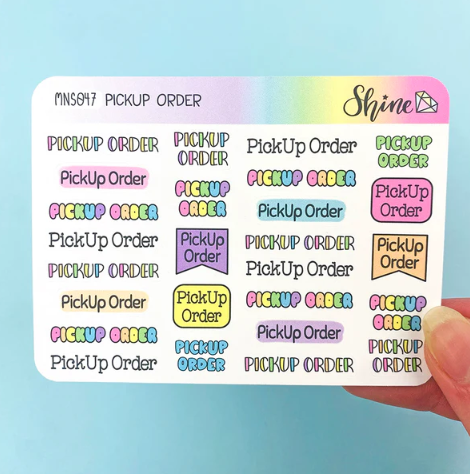 MNS047 PICKUP ORDER
Shine
PICKUP ORDER
PickUp Order
PICKUP ORDER
PickUp Order
PICKUP ORDER
PickUp Order
PICKUP ORDER
PickUp Order
PICKUP
ORDER
PICKUP
ORDER
PickUp
Order
PickUp
Order
PICKUP
ORDER
PickUp Order
PICKUP ORDER
PickUp Order
PICKUP ORDER
PickUp Order
PICKUP ORDER
PickUp Order
PICKUP ORDER
PICKUP
ORDER
PickUp
Order
PickUp
Order
PICKUP
ORDER
PICKUP
ORDER